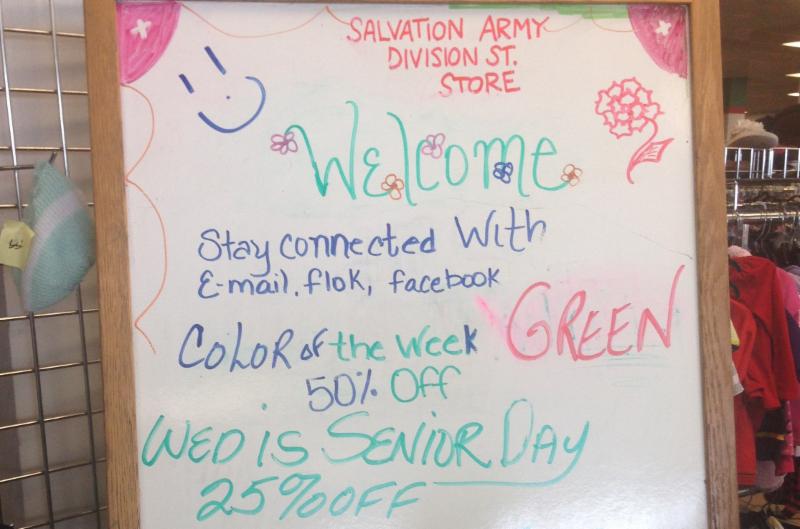 SALVATION ARMY
DIVISION ST.
STORE
Welcome
Stay connected With
E-mail, flok, facebook
COLOR of the Week GREEN
50% Off
WED IS SENIOR DAY
25% OFF